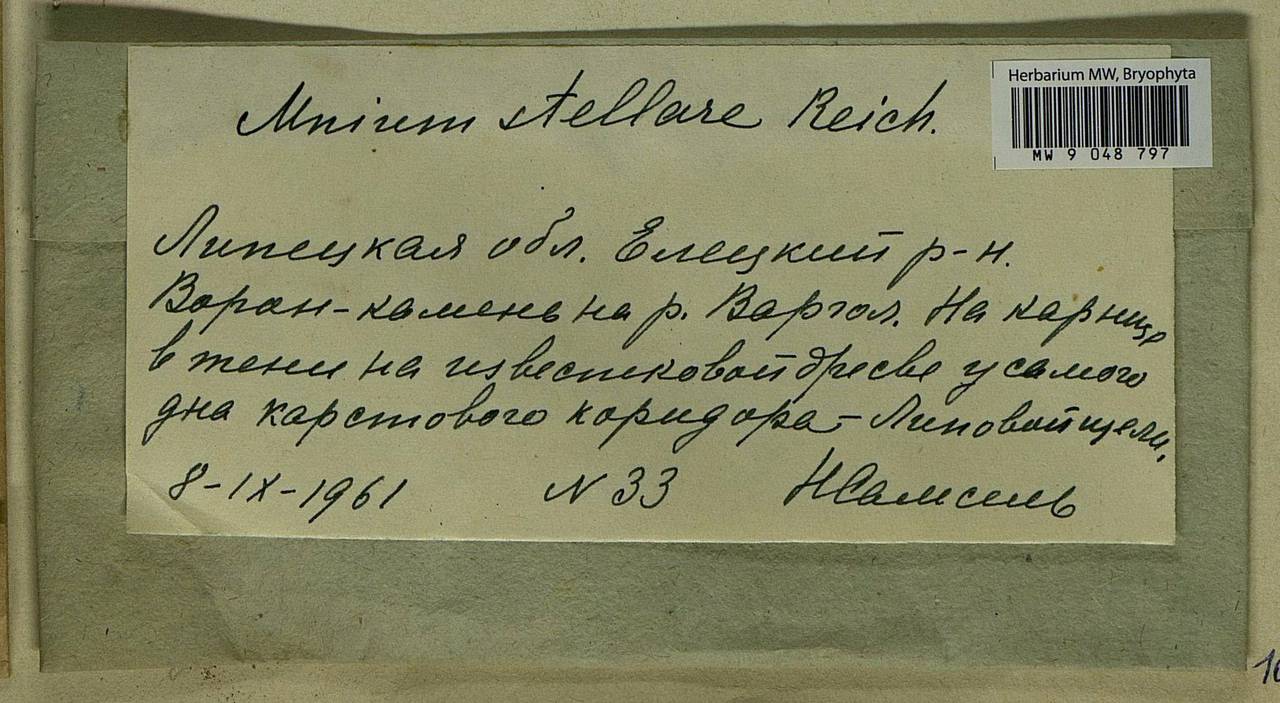 Herbarium MW, Bryophyta
MW 9 048 797
Mnium stellare Reich.
Липецкая обл. Елецкий р-н.
Воран-камень на р. Варгол. На карнизе
в тени на известковой дресве у самого
дна карстового коридора – Липовой щели.
8-IX-1961 N 33